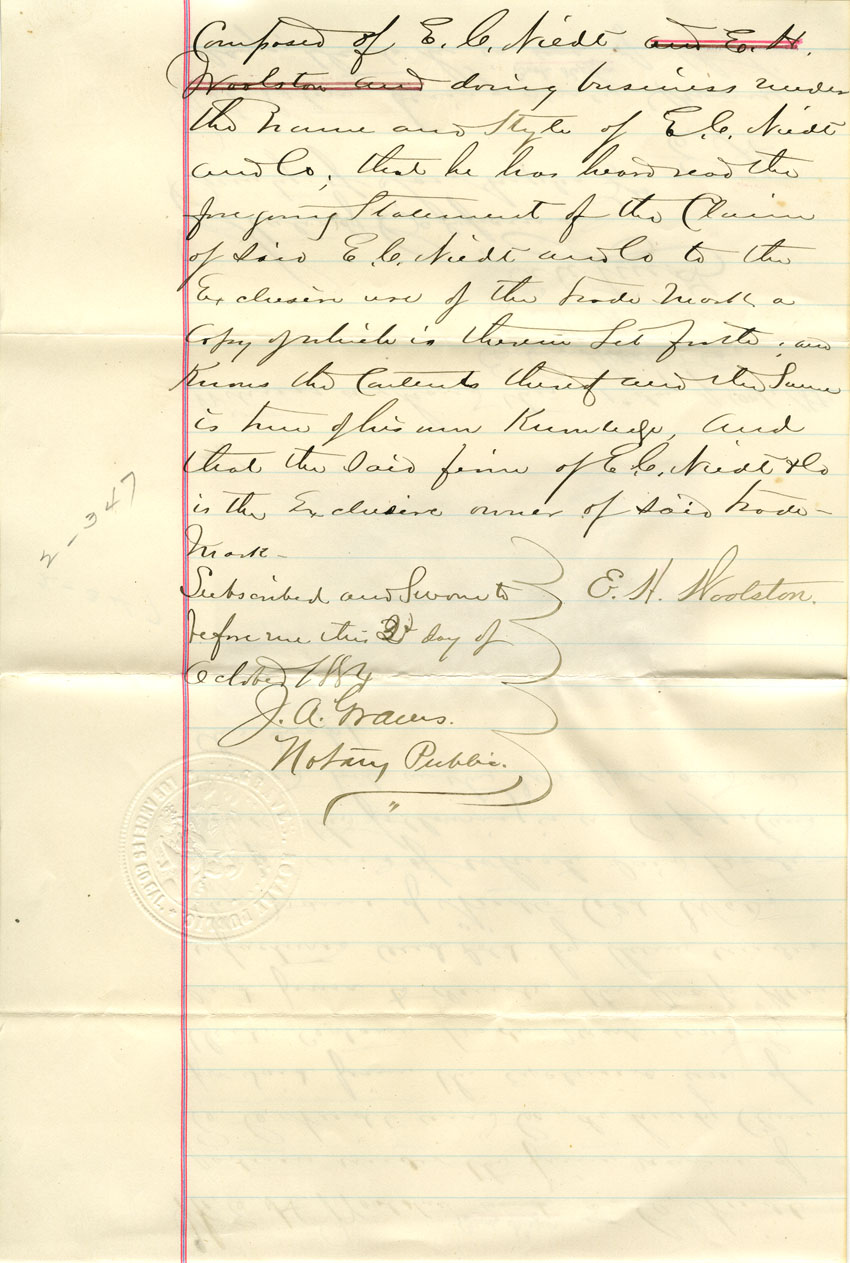 Composed of E. C. Niedt and E. H.
Woolston and doing business under
the name and Style of E. C. Niedt
and Co, that he has heard read the
foregoing Statement of the Claim
of said E. C. Niedt and Co to the
Exclusive use of the trade mark a
Copy of which is therein Set forth; and
Knows the Contents thereof and the Same
is true of his own Knowledge, and
that the Said firm of E. C. Niedt & Co
is the Exclusive owner of said trade-
Mark-
2-347
Subscribed and Sworn to
before me this day of
October 188
E. H. Woolston.
J. A. Graves.
Notary Public.